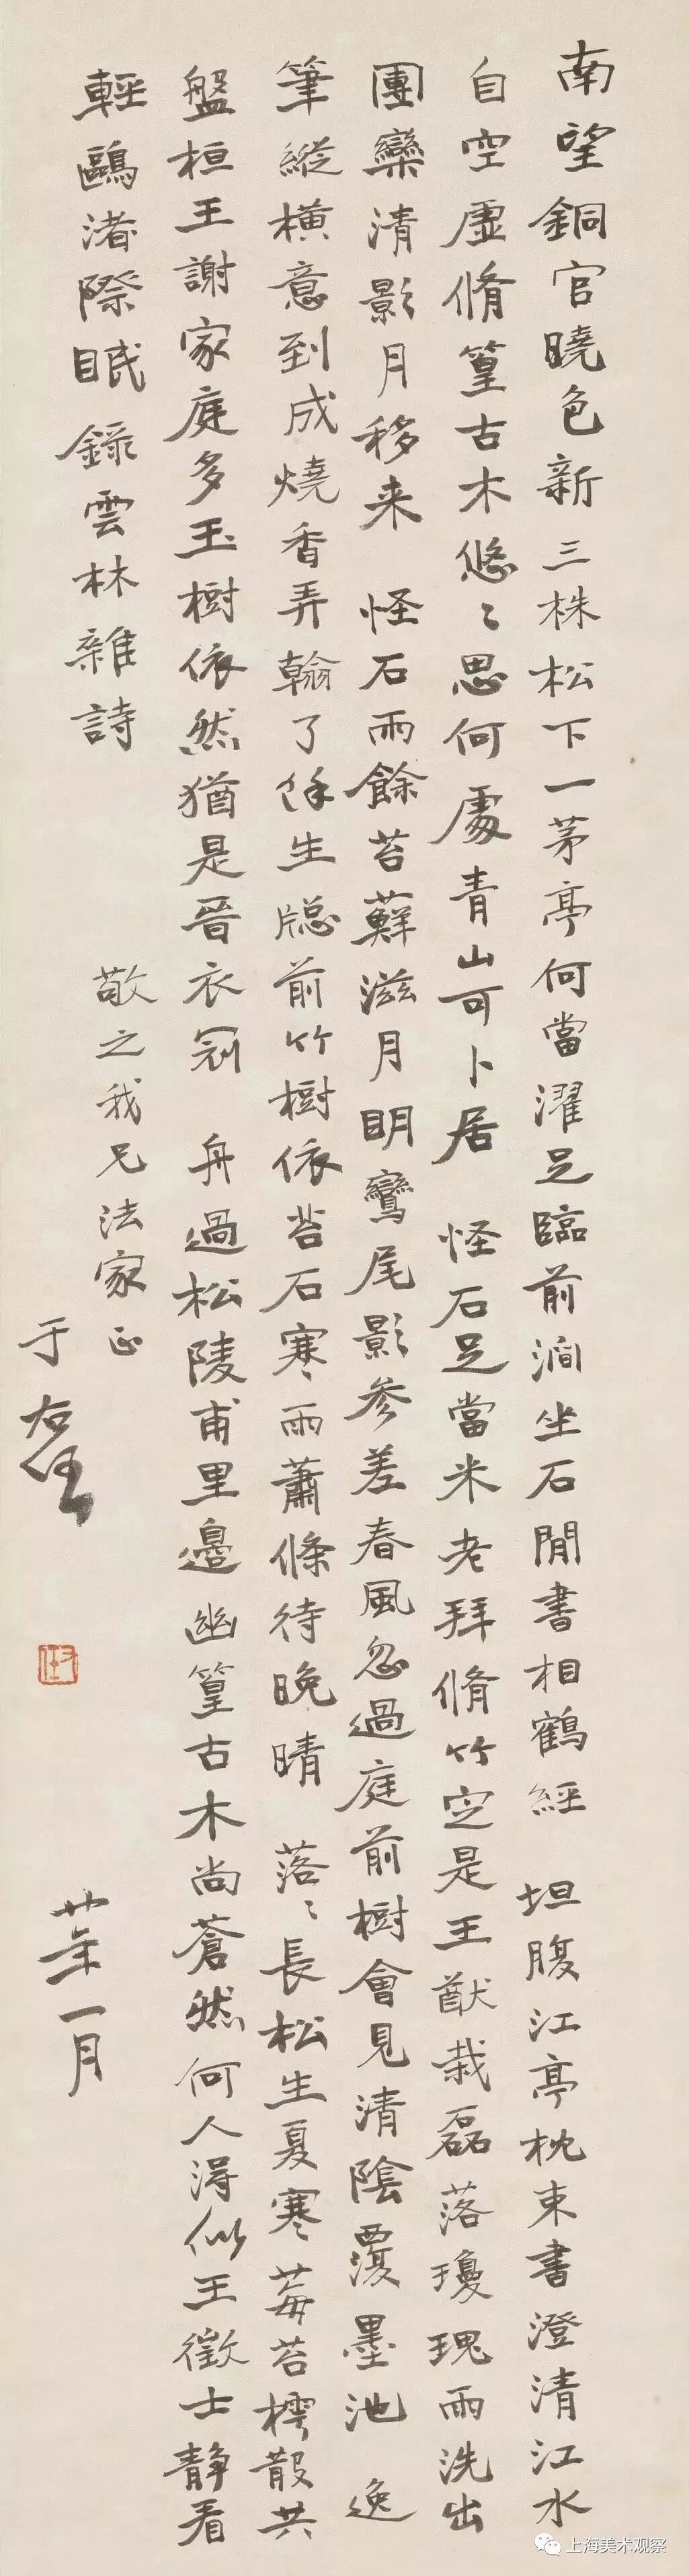 南望銅官曉色新三株松下一茅亭何當濯足臨前澗坐石閒書相鶴經 坦腹江亭枕束書澄清江水
自空虛脩篁古木悠〻思何處青山可卜居 怪石足當米老拜脩竹定是王猷栽磊落瓊瑰雨洗出
團欒清影月移来 怪石雨餘苔蘚滋月明鸞尾影參差春風忽過庭前樹會見清陰覆墨池 逸
筆縱橫意到成燒香弄翰了餘生窗前竹樹依苔石寒雨蕭條待晚晴 落〻長松生夏寒莓苔樗散共
盤桓王謝家庭多玉樹依然猶是晉衣冠 舟過松陵甫里邊幽篁古木尚蒼然何人得似王徵士静看
輕鷗渚際眠 錄雲林雜詩
敬之我兄法家正
于右任
廿年一月
上海美术观察